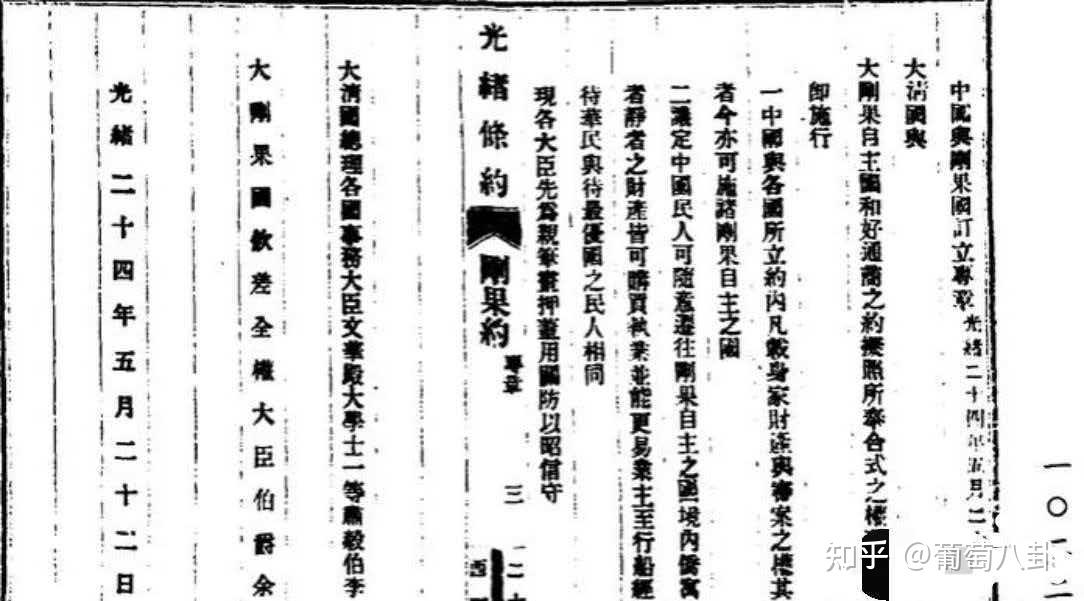 中國與剛果國訂立專章光緒二十四年五月二
大清國與
大剛果自主國和好通商之約擬照所奉合式之權
卽施行
一中國與各國所立約內凡載身家財產與審案之權其
者今亦可施諸剛果自主之國
二議定中國民人可隨意遷往剛果自主之國境內僑寓
者靜者之財產皆可購買執業並能更易業主至行船經
待華民與待最優國之民人相同
現各大臣先爲親筆畫押蓋用國防以昭信守
光緒條約 剛果約 專章 三 二 西
大清國總理各國事務大臣文華殿大學士一等肅毅伯李
大剛果國欽差全權大臣伯爵余
光緒二十四年五月二十二日
一〇一二
知乎 @葡萄八卦